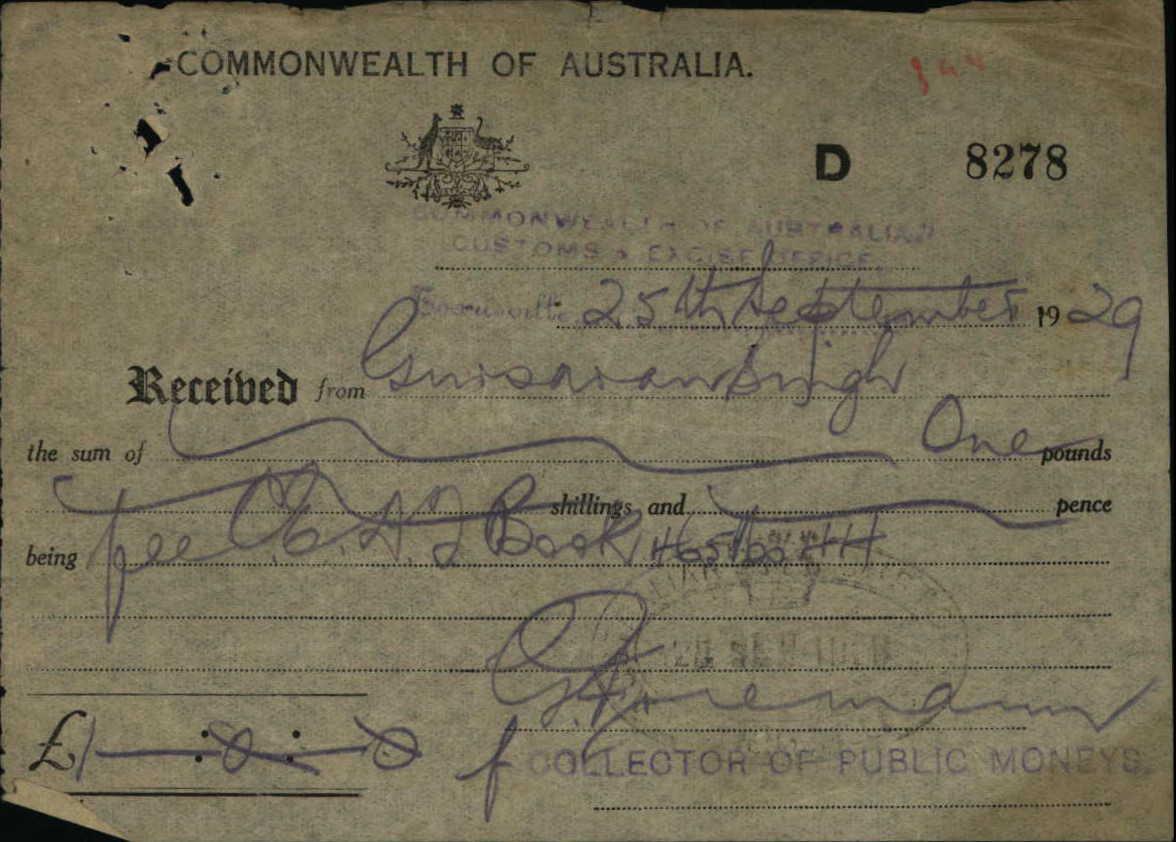 COMMONWEALTH OF AUSTRALIA.
D 8278
COMMONWEALTH OF AUSTRALIA
CUSTOMS & EXCISE OFFICE
Townsville 25th September 1929
Received from Gursaran Singh
the sum of One pounds
shillings and pence
being fee C.E.D.T Book
G. Foreman
£1 : 0 : 0 f COLLECTOR OF PUBLIC MONEYS.